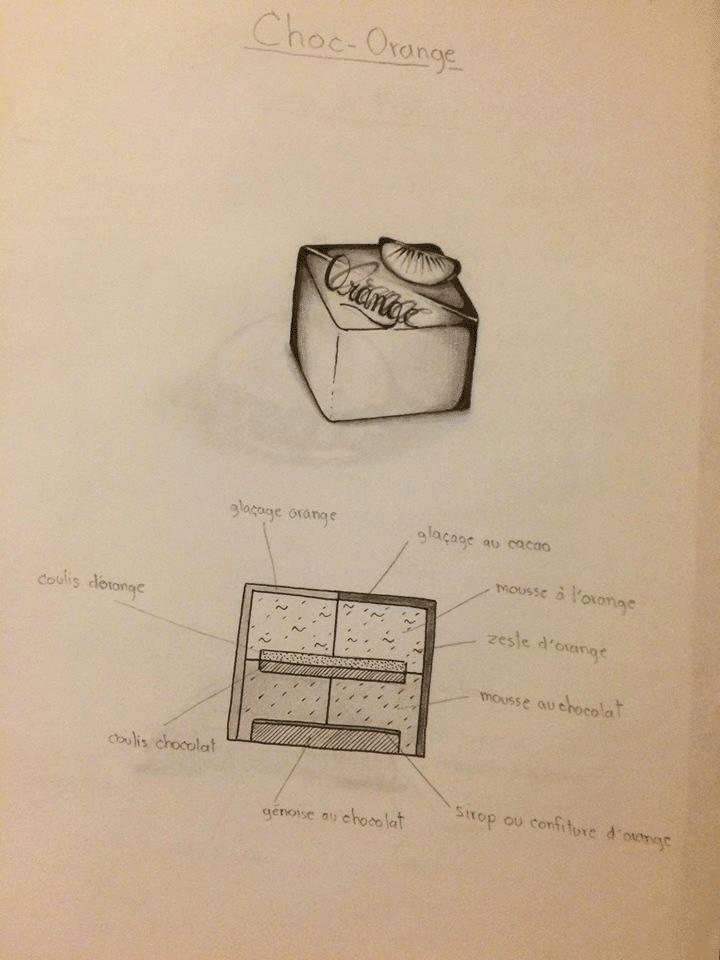 Choc-Orange
Orange
glaçage orange
glaçage au cacao
coulis d'orange
mousse à l'orange
zeste d'orange
mousse au chocolat
coulis chocolat
génoise au chocolat
sirop ou confiture d'orange